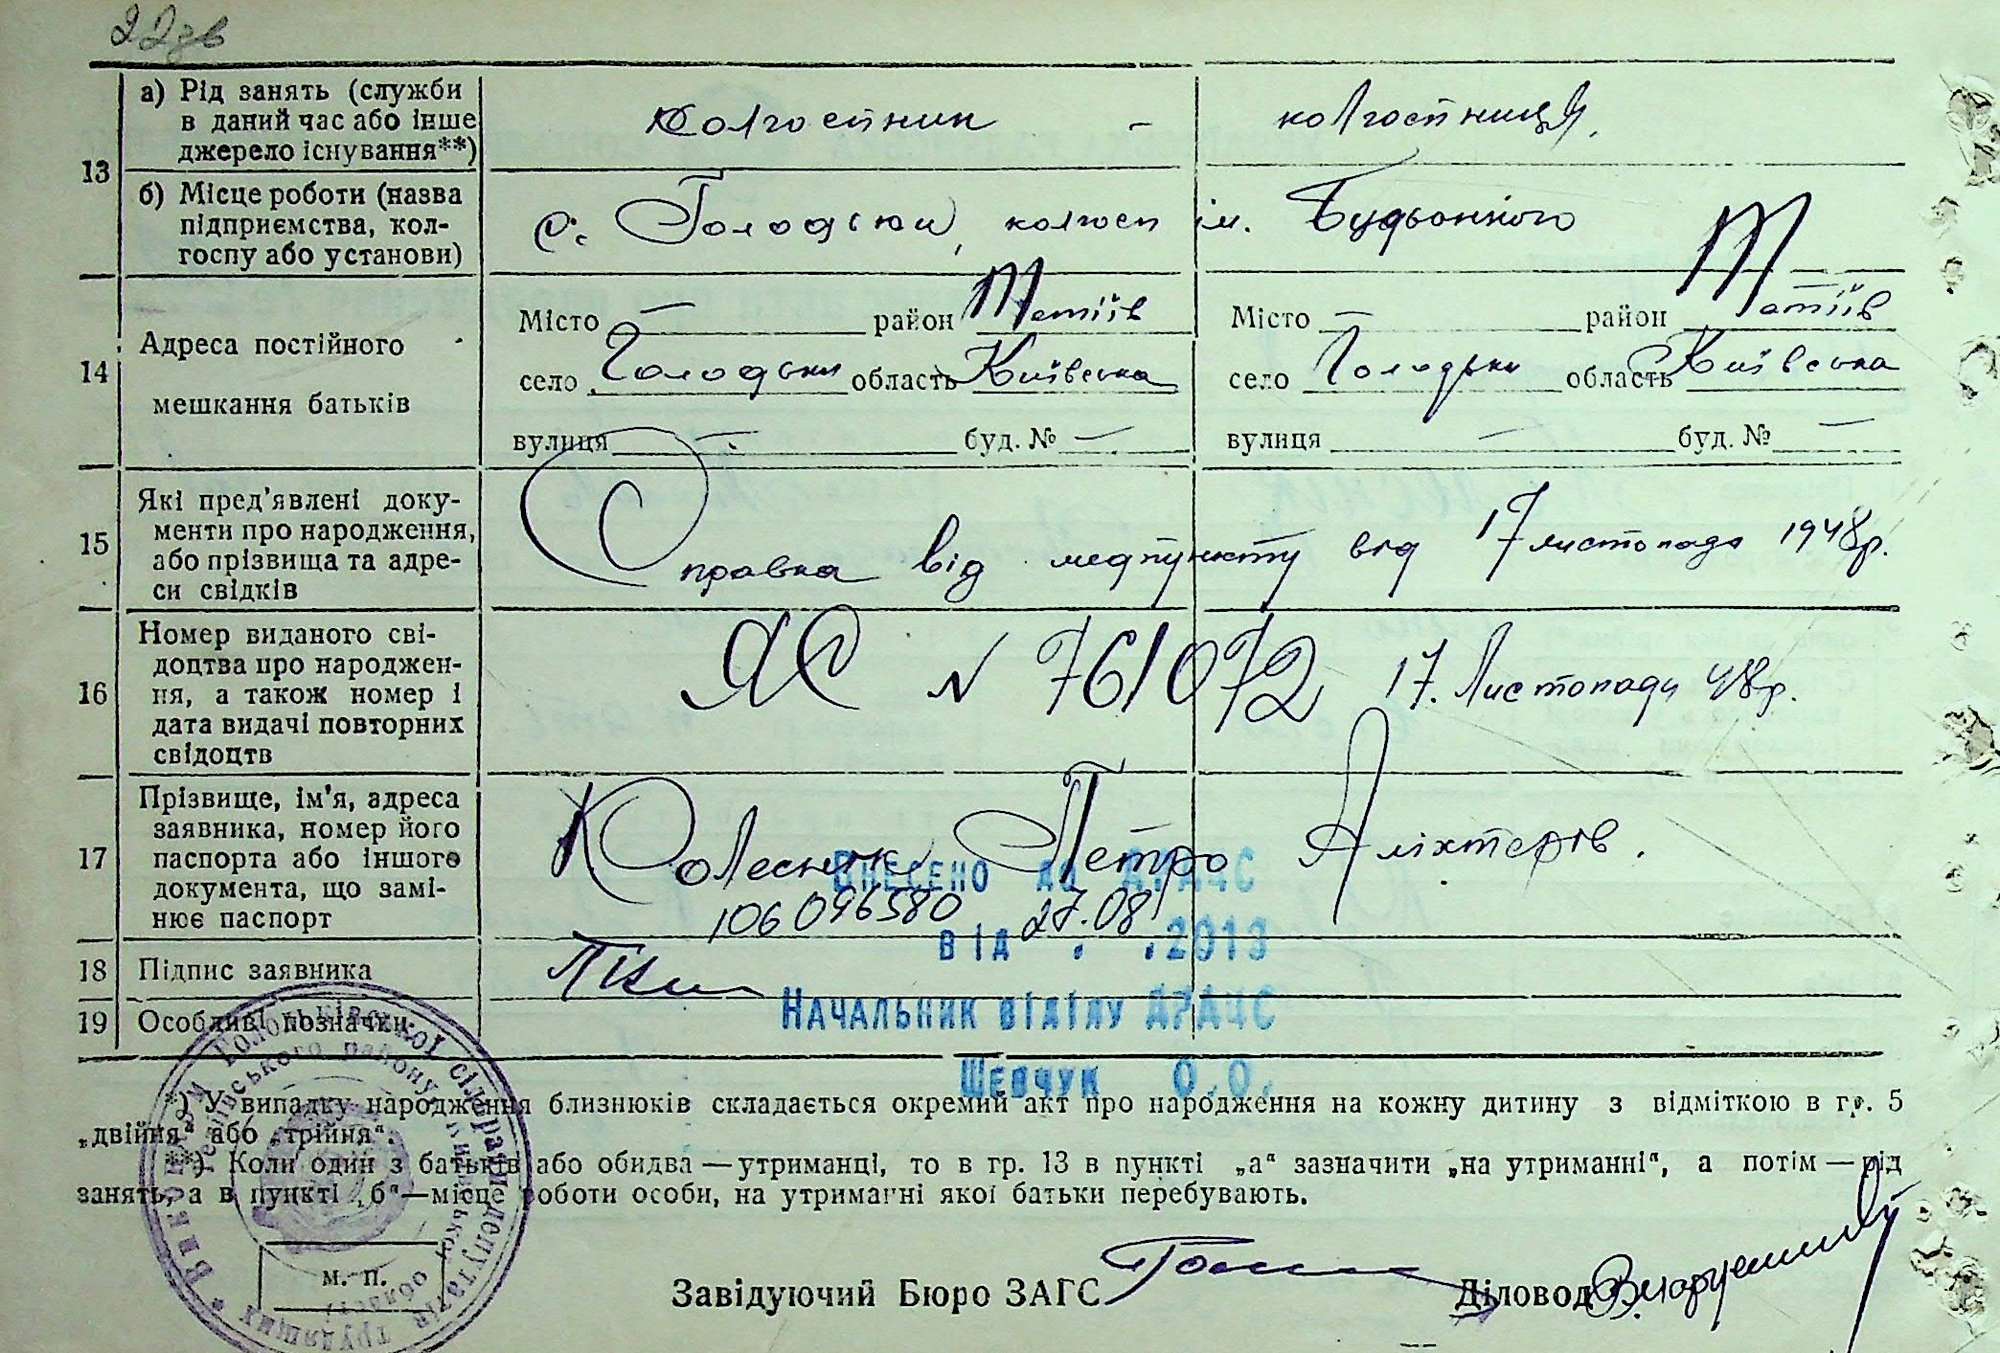 22зв
13
а) Рід занять (служби
в даний час або інше
джерело існування**)
Колгоспник – колгоспниця
б) Місце роботи (назва
підприємства, кол-
госпу або установи)
с. Голодьки, колгосп ім. Будьонного
14
Адреса постійного
мешкання батьків
Місто — район Тетіїв
Місто — район Тетіїв
село Голодьки область Київська
село Голодьки область Київська
вулиця — буд. № —
вулиця — буд. № —
15
Які пред'явлені доку-
менти про народження,
або прізвища та адре-
си свідків
Справка від медпункту від 17 листопада 1948р.
16
Номер виданого сві-
доцтва про народжен-
ня, а також номер і
дата видачі повторних
свідоцтв
ЯС N 761072 17. Листопада 48р.
17
Прізвище, ім'я, адреса
заявника, номер його
паспорта або іншого
документа, що замі-
нює паспорт
Колесник Петро
Внесено до ДРАЦС
106096580 27.08
від . .2013
18
Підпис заявника
Начальник відділу ДРАЦС
19
Особливі позначки
Шевчук О.О.
*) У випадку народження близнюків складається окремий акт про народження на кожну дитину з відміткою в гр. 5
„двійня" або „трійня".
**) Коли один з батьків або обидва — утриманці, то в гр. 13 в пункті „а" зазначити „на утриманні", а потім — рід
занять, а в пункті „б"—місце роботи особи, на утриманні якої батьки перебувають.
м. п.
Завідуючий Бюро ЗАГС
Діловод
Виконком Голодьківської сільради депутатів трудящих
Тетіївського району Київської області